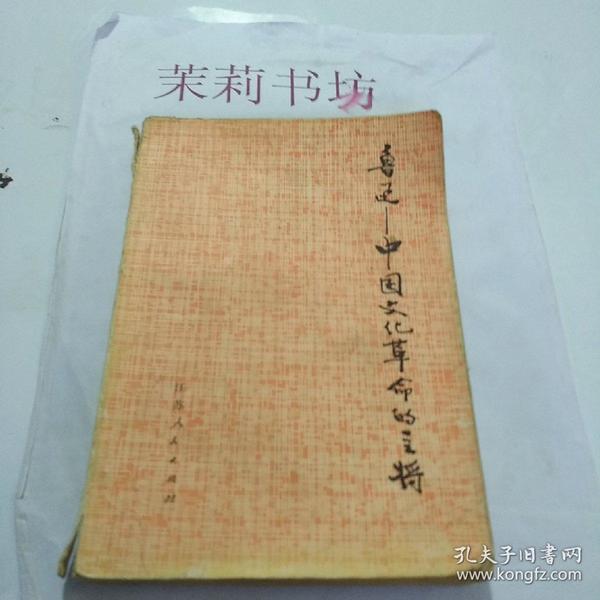 茉莉书坊
鲁迅—中国文化革命的主将
江苏人民出版社
孔夫子旧书网
www.kongfz.com